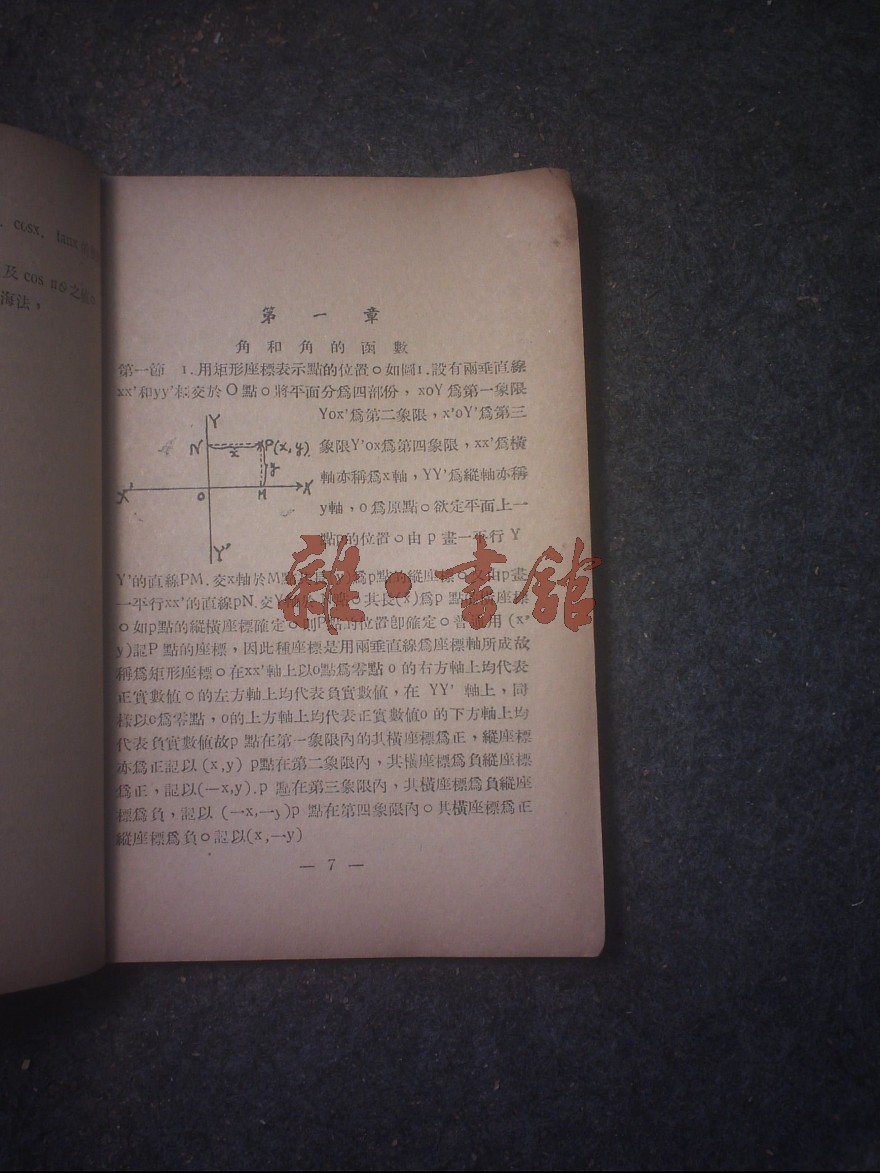 cosx, tanx
及 cos nφ 之值。
海法，
第一章
角和角的函數
第一節 1.用矩形座標表示點的位置。如圖1.設有兩垂直線
xx'和yy'相交於O點。將平面分爲四部份，xoY爲第一象限
Yox'爲第二象限，x'oY'爲第三
象限Y'ox爲第四象限，xx'爲橫
軸亦稱爲x軸，YY'爲縱軸亦稱
y軸，o爲原點。欲定平面上一
點p的位置。由p畫一平行Y
Y
N
x
P(x,y)
y
X'
O
M
X
Y'
Y'的直線PM.交x軸於M點其長(y)爲p點的縱座標。又由p畫
一平行xx'的直線pN.交Y軸於N點。其長(x)爲p點的橫座標
。如p點的縱橫座標確定。則P點的位置卽確定。普通用(x,
y)記P點的座標，因此種座標是用兩垂直線爲座標軸所成故
稱爲矩形座標。在xx'軸上以o點爲零點o的右方軸上均代表
正實數值。的左方軸上均代表負實數値，在YY'軸上，同
樣以o爲零點，o的上方軸上均代表正實數値o的下方軸上均
代表負實數値故p點在第一象限內的其橫座標爲正，縱座標
亦爲正記以(x,y) p點在第二象限內，其橫座標爲負縱座標
爲正，記以(—x,y).p點在第三象限內，其橫座標爲負縱座
標爲負，記以(—x,—y)p點在第四象限內。其橫座標爲正
縱座標爲負。記以(x,—y)
— 7 —
雜·書館